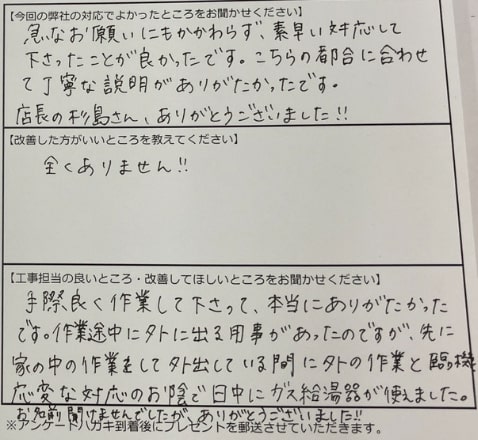 【今回の弊社の対応でよかったところをお聞かせください】
急なお願いにもかかわらず、素早い対応して
下さったことが良かったです。こちらの都合に合わせ
て丁寧な説明がありがたかったです。
店長の杉島さん、ありがとうございました!!
【改善した方がいいところを教えてください】
全くありません!!
【工事担当の良いところ・改善してほしいところをお聞かせください】
手際良く作業して下さって、本当にありがたかった
です。作業途中に外に出る用事があったのですが、先に
家の中の作業をして外出している間に外の作業と臨機
応変な対応のお陰で日中にガス給湯器が使えました。
お名前聞けませんでしたが、ありがとうございました!!
※アンケートハガキ到着後にプレゼントを郵送させていただきます。